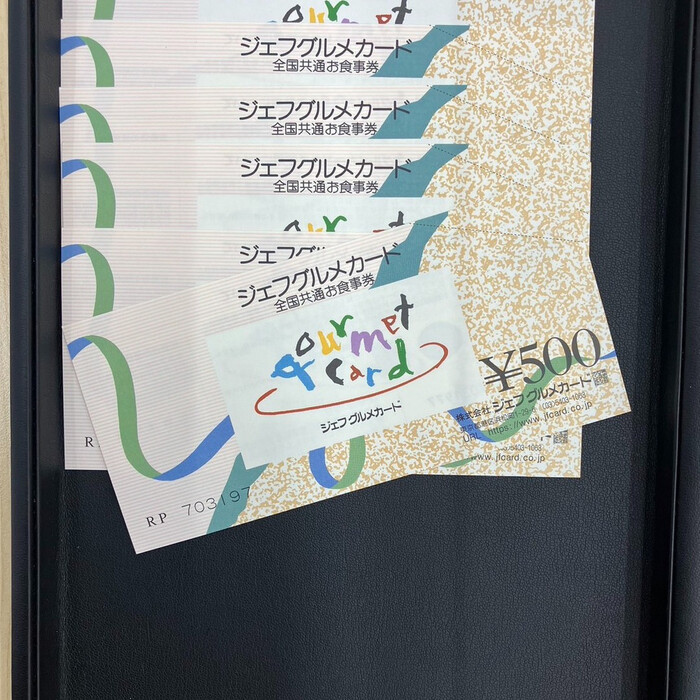 ourmet
ジェフグルメカード
全国共通お食事券
ジェフグルメカード
全国共通お食事券
ジェフグルメカード
全国共通お食事券
ジェフグルメカード
全国共通お食事券
Gourmet
Card
ジェフグルメカード
¥500
株式会社 ジェフグルメカード
URL https://www.jfcard.co.jp
RP 703197
03-6403-1063
www.jfcard.co.jp